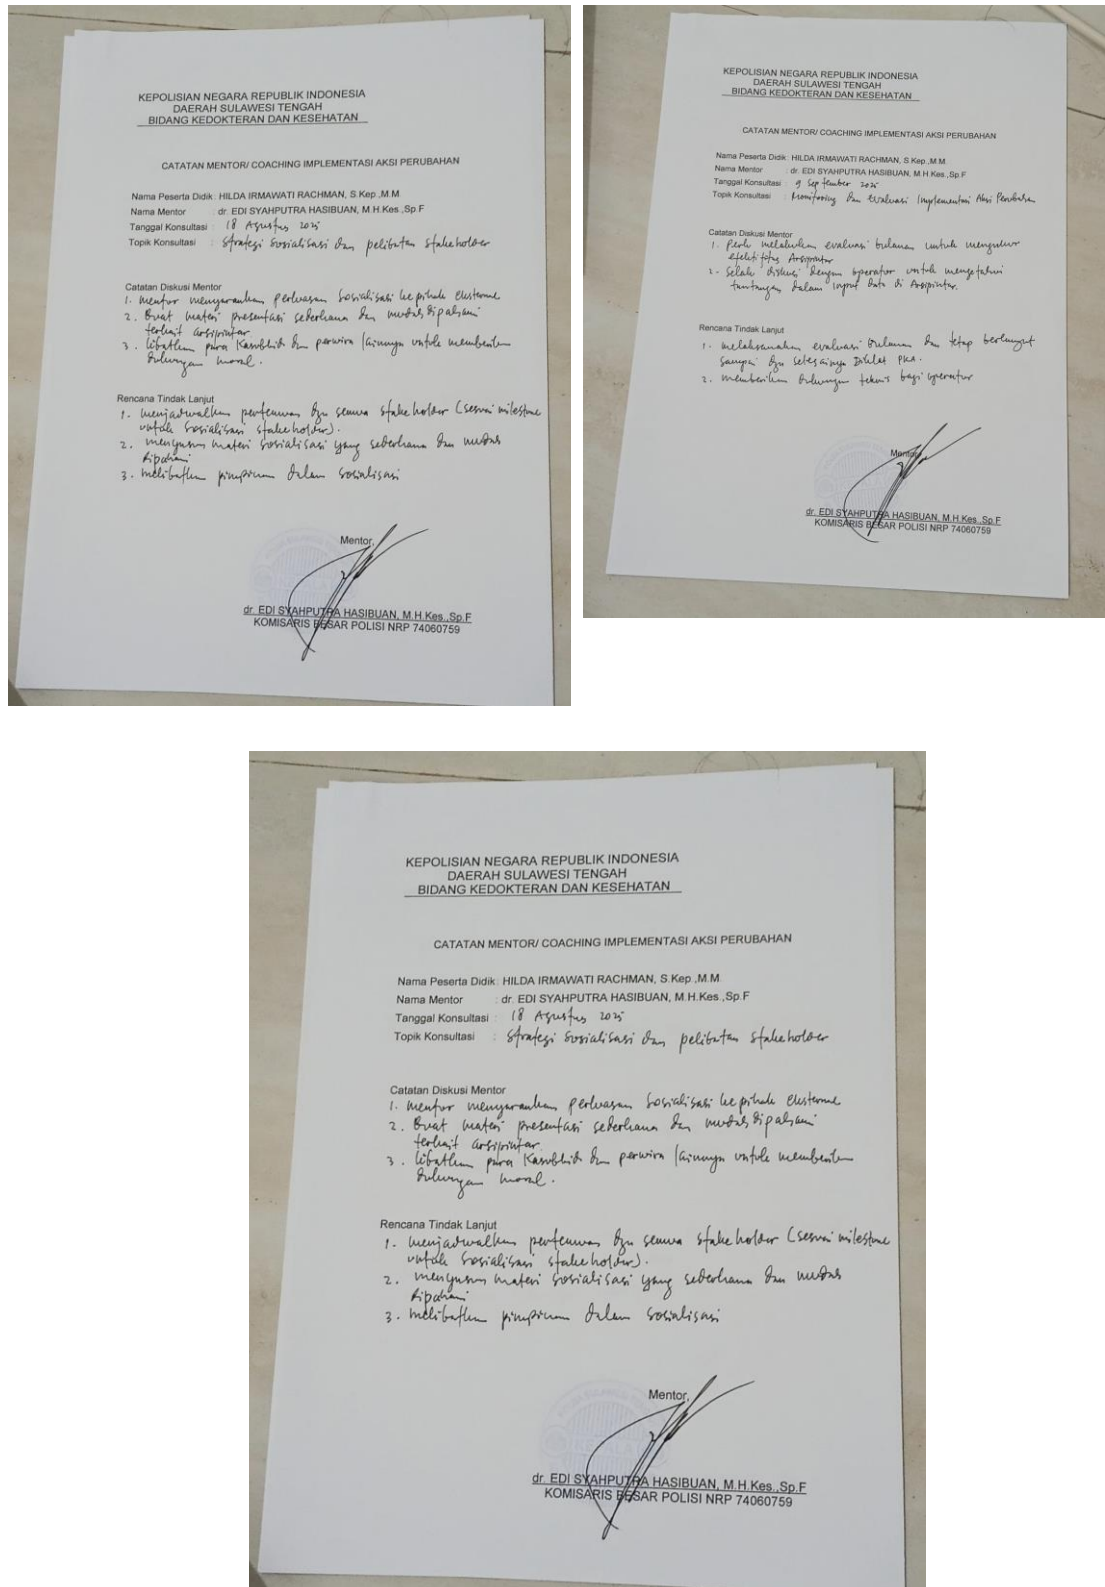 KEPOLISIAN NEGARA REPUBLIK INDONESIA
DAERAH SULAWESI TENGAH
BIDANG KEDOKTERAN DAN KESEHATAN
CATATAN MENTOR/ COACHING IMPLEMENTASI AKSI PERUBAHAN
Nama Peserta Didik : HILDA IRMAWATI RACHMAN, S.Kep.,M.M.
Nama Mentor : dr. EDI SYAHPUTRA HASIBUAN, M.H.Kes.,Sp.F
Tanggal Konsultasi : 18 Agustus 2025
Topik Konsultasi : Strategi Sosialisasi dan pelibatan stakeholder
Catatan Diskusi Mentor
1. mentor menyarankan perluasan sosialisasi ke pihak eksternal
2. Buat materi presentasi sederhana dan mudah dipahami
terkait arsipintar.
3. libatkan para Kasubbid dan perwira lainnya untuk memberikan
dukungan moral.
Rencana Tindak Lanjut
1. menjadwalkan pertemuan dgn semua stakeholder (sesuai milestone
untuk sosialisasi stakeholder).
2. menyusun materi sosialisasi yang sederhana dan mudah
dipahami
3. melibatkan pimpinan dalam sosialisasi
Mentor,
dr. EDI SYAHPUTRA HASIBUAN, M.H.Kes.,Sp.F
KOMISARIS BESAR POLISI NRP 74060759
KEPOLISIAN NEGARA REPUBLIK INDONESIA
DAERAH SULAWESI TENGAH
BIDANG KEDOKTERAN DAN KESEHATAN
CATATAN MENTOR/ COACHING IMPLEMENTASI AKSI PERUBAHAN
Nama Peserta Didik : HILDA IRMAWATI RACHMAN, S.Kep.,M.M.
Nama Mentor : dr. EDI SYAHPUTRA HASIBUAN, M.H.Kes.,Sp.F
Tanggal Konsultasi : 9 September 2025
Topik Konsultasi : Monitoring dan evaluasi Implementasi Aksi Perubahan
Catatan Diskusi Mentor
1. Perlu melakukan evaluasi bulanan untuk mengukur
efektifitas Arsipintar
2. Selalu diskusi dengan operator untuk mengetahui
tantangan dalam input data di Arsipintar.
Rencana Tindak Lanjut
1. melaksanakan evaluasi bulanan dan tetap berlanjut
sampai dgn selesainya Diklat PKA.
2. memberikan dukungan teknis bagi operator
Mentor,
dr. EDI SYAHPUTRA HASIBUAN, M.H.Kes.,Sp.F
KOMISARIS BESAR POLISI NRP 74060759
KEPOLISIAN NEGARA REPUBLIK INDONESIA
DAERAH SULAWESI TENGAH
BIDANG KEDOKTERAN DAN KESEHATAN
CATATAN MENTOR/ COACHING IMPLEMENTASI AKSI PERUBAHAN
Nama Peserta Didik : HILDA IRMAWATI RACHMAN, S.Kep.,M.M.
Nama Mentor : dr. EDI SYAHPUTRA HASIBUAN, M.H.Kes.,Sp.F
Tanggal Konsultasi : 18 Agustus 2025
Topik Konsultasi : Strategi Sosialisasi dan pelibatan stakeholder
Catatan Diskusi Mentor
1. mentor menyarankan perluasan sosialisasi ke pihak eksternal
2. Buat materi presentasi sederhana dan mudah dipahami
terkait arsipintar.
3. libatkan para Kasubbid dan perwira lainnya untuk memberikan
dukungan moral.
Rencana Tindak Lanjut
1. menjadwalkan pertemuan dgn semua stakeholder (sesuai milestone
untuk sosialisasi stakeholder).
2. menyusun materi sosialisasi yang sederhana dan mudah
dipahami
3. melibatkan pimpinan dalam sosialisasi
Mentor,
dr. EDI SYAHPUTRA HASIBUAN, M.H.Kes.,Sp.F
KOMISARIS BESAR POLISI NRP 74060759